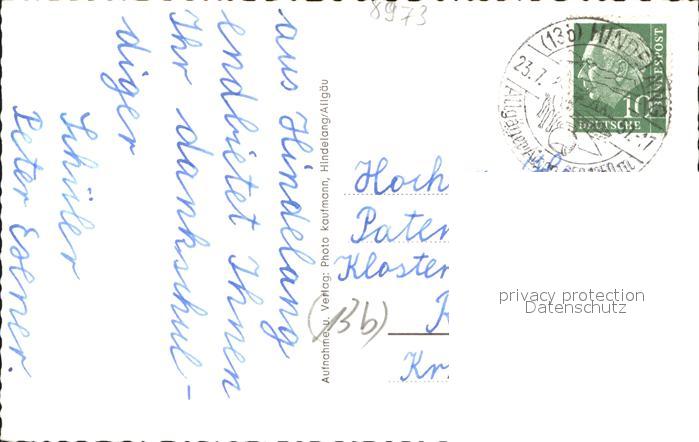 8973
aus Hindelang
endbietet Ihnen
Ihr dankschul-
diger
Schüler
Peter
Aufnahme u. Verlag: Photo Kaufmann, Hindelang/Allgäu
(13b) HINDEL
23.7.
10
DEUTSCHE
BUNDESPOST
Hoch
Pater
Kloster
(13b)
Kr
privacy protection
Datenschutz